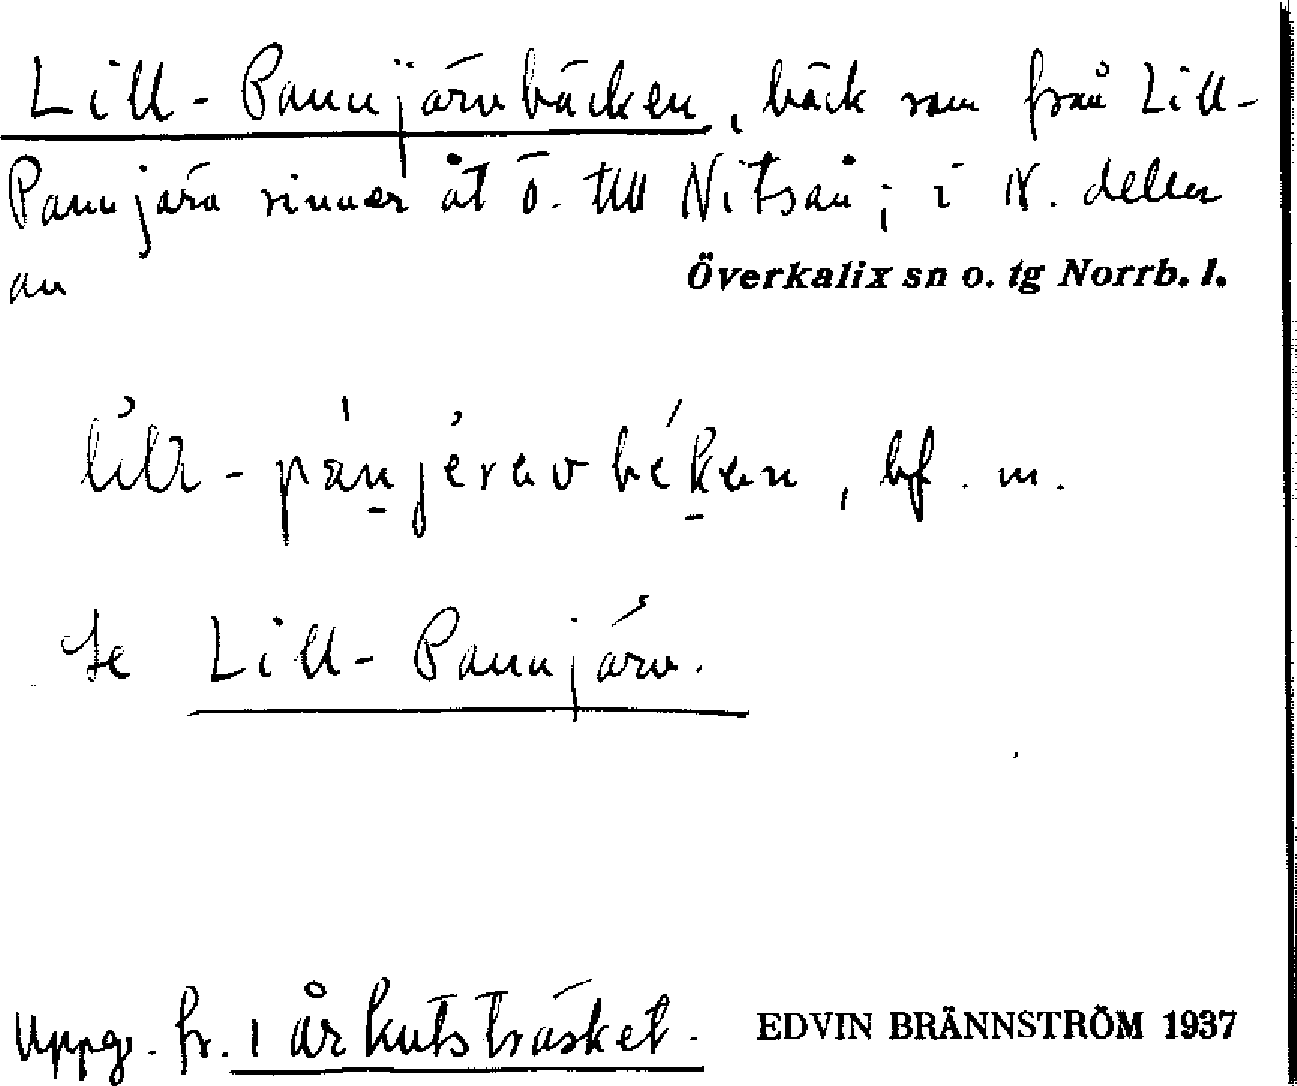 Lill-Pannjärvbäcken, bäck som från Lill-
Pannjärv rinner åt ö. till Nitsån; i N. delen
av
Överkalix sn o. tg Norrb. l.
bf. m.
Se Lill-Pannjärv.
Uppg. fr.
EDVIN BRÄNNSTRÖM 1937